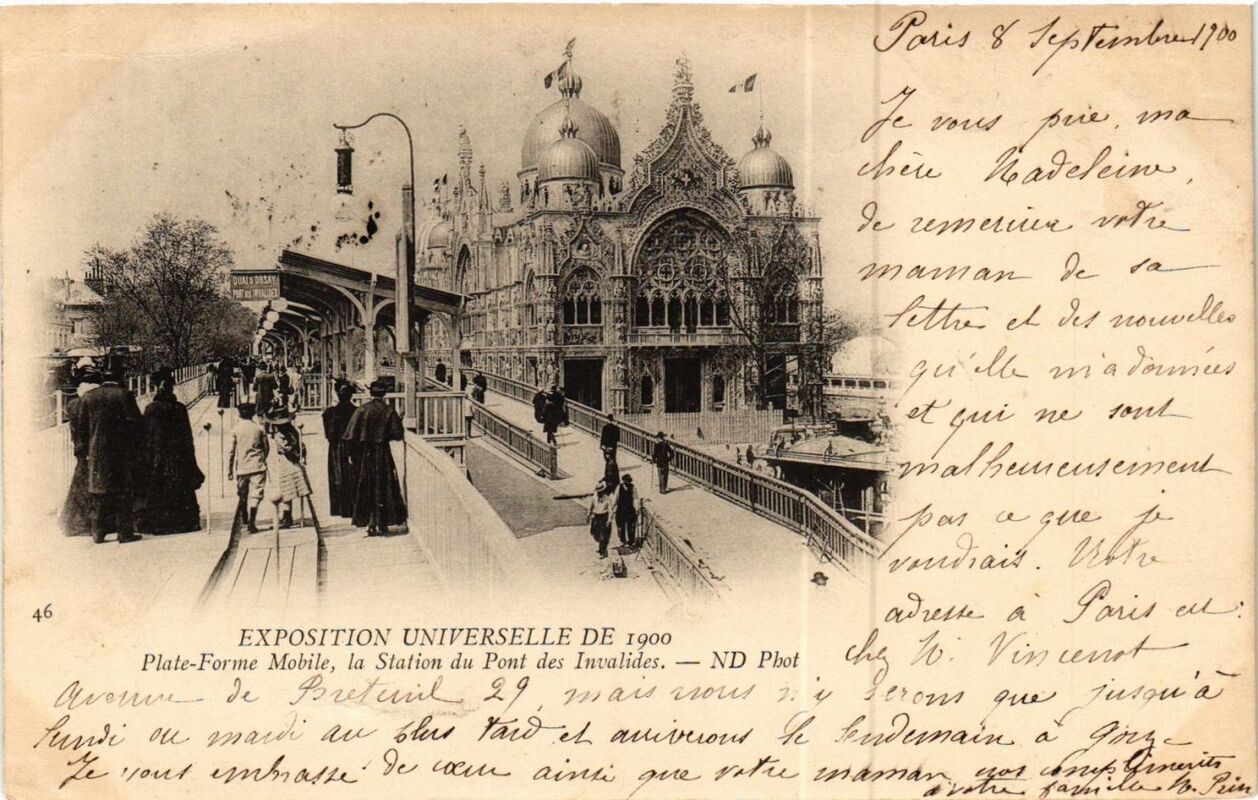 Paris 8 Septembre 1900
Je vous prie, ma
chère Madeleine,
de remercier votre
maman de sa
lettre et des nouvelles
qu'elle m'a données
et qui ne sont
malheureusement
pas ce que je
voudrais. Votre
adresse à Paris est:
chez M. Vincenot
QUAI D'ORSAY
PONT DES INVALIDES
46
EXPOSITION UNIVERSELLE DE 1900
Plate-Forme Mobile, la Station du Pont des Invalides. — ND Phot
Avenue de Breteuil 29, mais nous n'y serons que jusqu'à
lundi ou mardi au plus tard et arriverons le lendemain à
Je vous embrasse de cœur ainsi que votre maman nos compliments
à votre famille